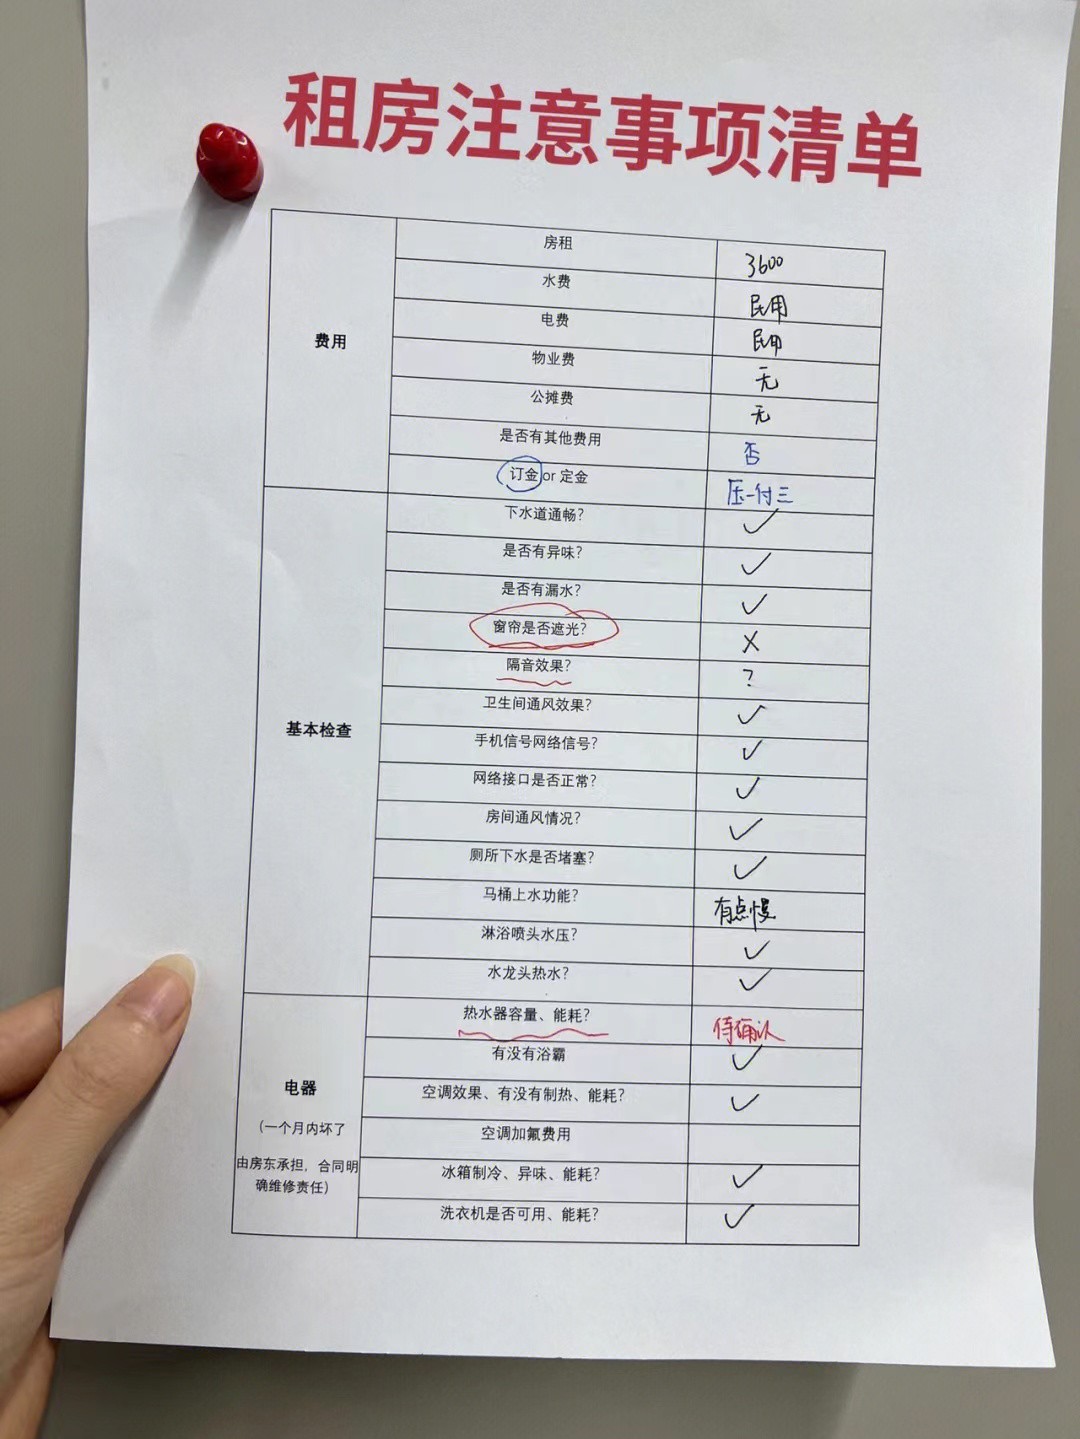 租房注意事项清单
费用
房租 3600
水费 民用
电费 民用
物业费 无
公摊费 无
是否有其他费用 否
订金 or 定金 压一付三
基本检查
下水道通畅? ✓
是否有异味? ✓
是否有漏水? ✓
窗帘是否遮光? X
隔音效果? ?
卫生间通风效果? ✓
手机信号网络信号? ✓
网络接口是否正常? ✓
房间通风情况? ✓
厕所下水是否堵塞? ✓
马桶上水功能? 有点慢
淋浴喷头水压? ✓
水龙头热水? ✓
电器
(一个月内坏了
由房东承担,合同明
确维修责任)
热水器容量、能耗? 待确认
有没有浴霸 ✓
空调效果、有没有制热、能耗? ✓
空调加氟费用
冰箱制冷、异味、能耗? ✓
洗衣机是否可用、能耗? ✓